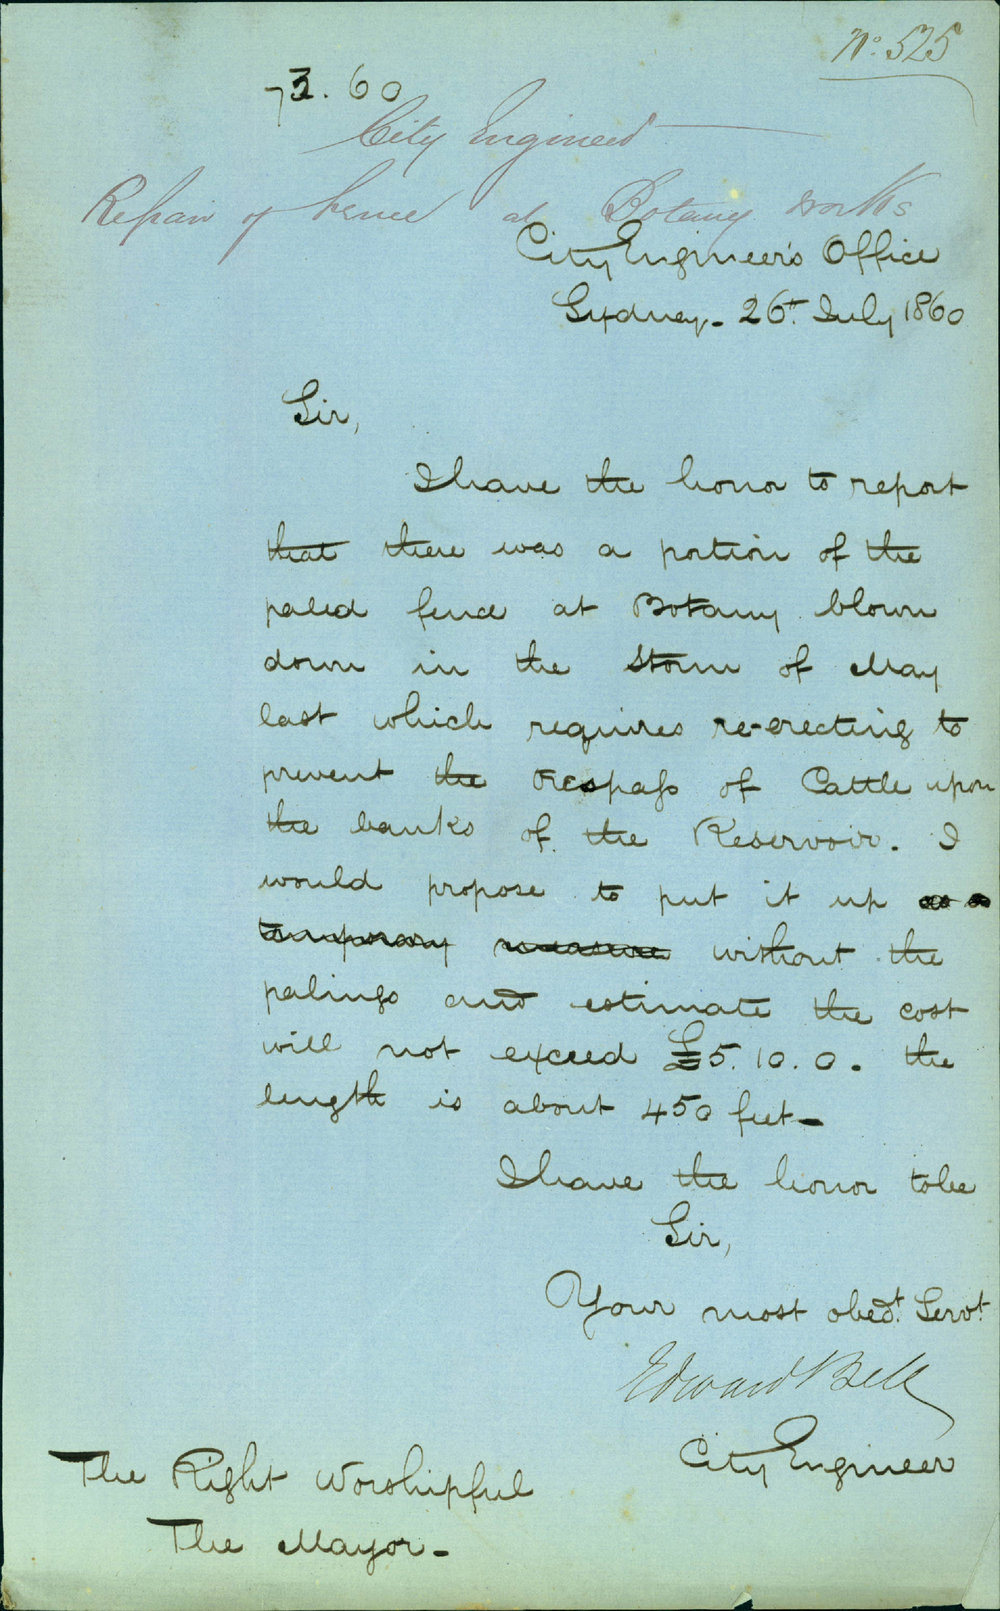 No. 525
73. 60
City Engineer
Repair of fence at Botany Works
City Engineer's Office
Sydney - 26t. July 1860
Sir,
I have the honor to report
that there was a portion of the
paled fence at Botany blown
down in the Storm of May
last which requires re-erecting to
prevent the trespass of Cattle upon
the banks of the Reservoir. I
would propose to put it up as a
temporary measure without the
palings and estimate the cost
will not exceed £5.10.0. the
length is about 450 feet -
I have the honor to be
Sir,
Your most obedt. Servt.
Edward Bell
City Engineer
The Right Worshipful
The Mayor -